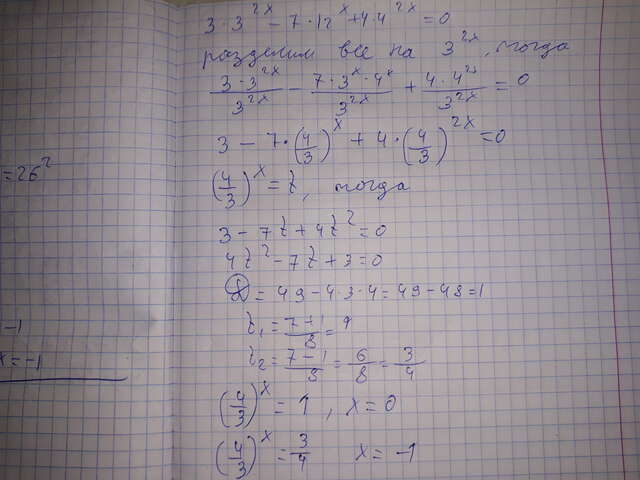 =26²
-1
x=-1
3·3^2x - 7·12^x + 4·4^2x = 0
разделим все на 3^2x, тогда
3·3^2x/3^2x - 7·3^x·4^x/3^2x + 4·4^2x/3^2x = 0
3 - 7·(4/3)^x + 4·(4/3)^2x = 0
(4/3)^x = t, тогда
3 - 7t + 4t² = 0
4t² - 7t + 3 = 0
D = 49 - 4·3·4 = 49 - 48 = 1
t₁ = 7+1/8 = 1
t₂ = 7-1/8 = 6/8 = 3/4
(4/3)^x = 1, x = 0
(4/3)^x = 3/4 x = -1